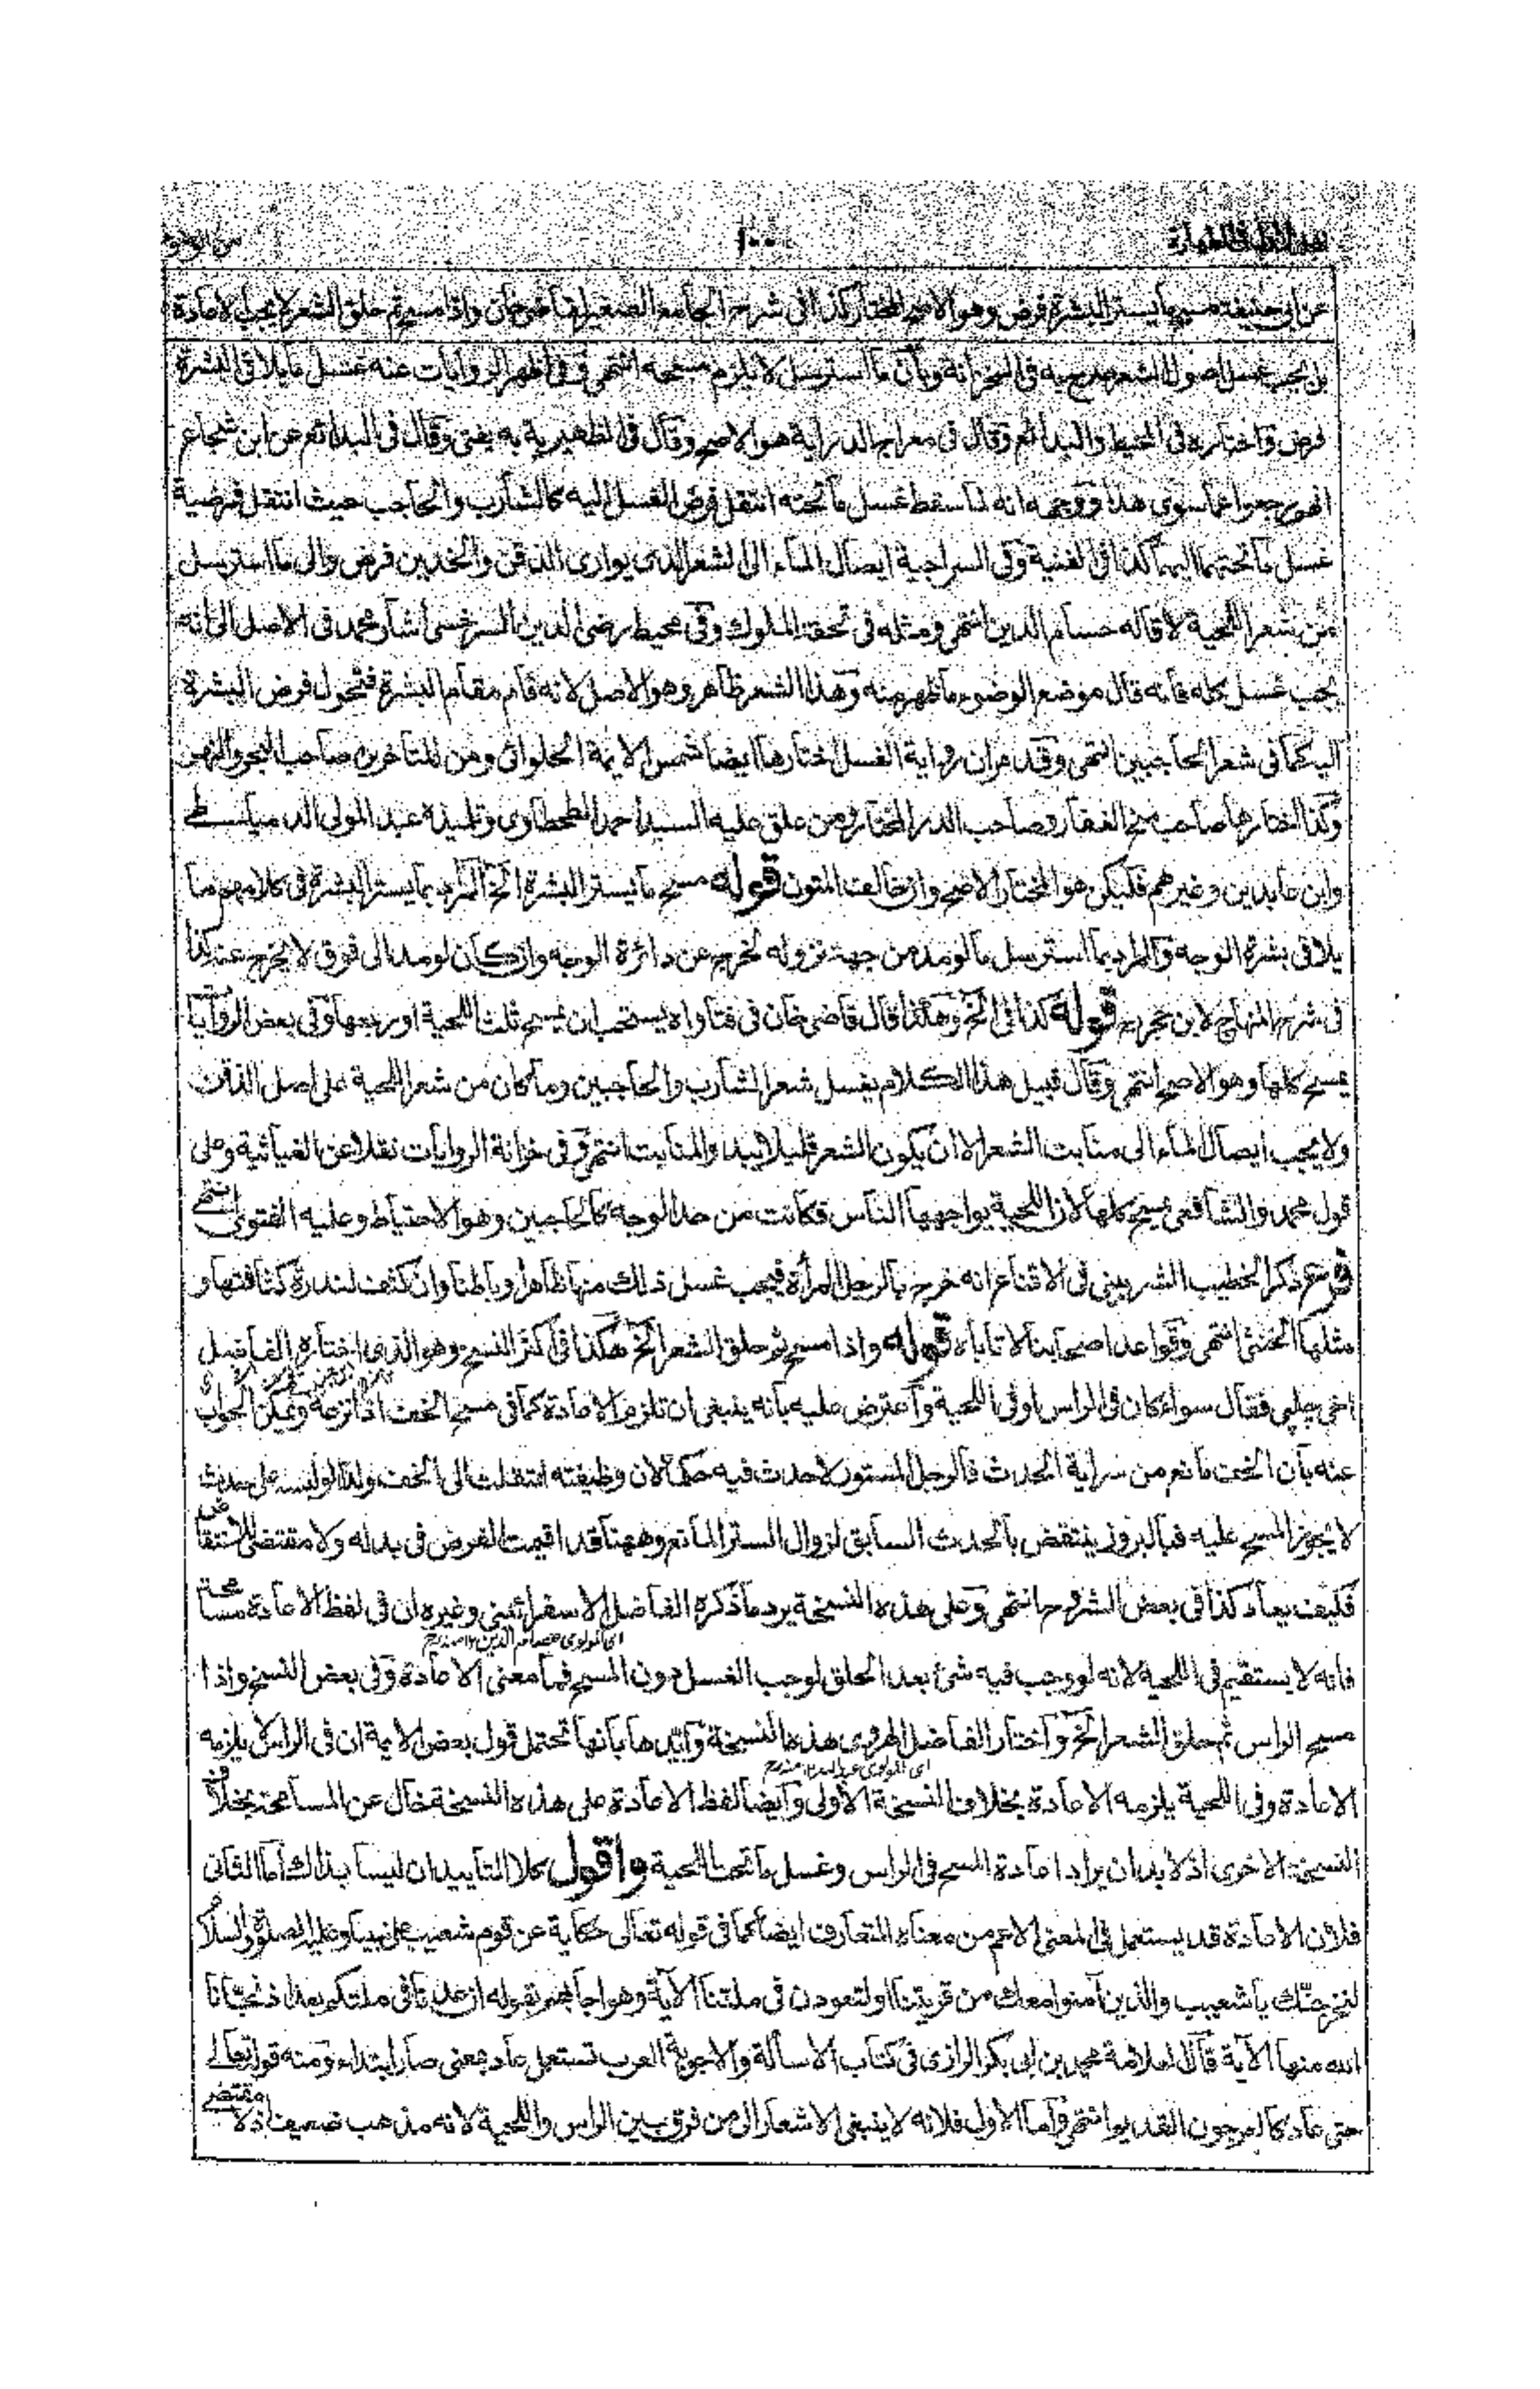 ١٠٠
عن ابى حنيفة مسح ما يستر البشرة فرض وهو الاصح المختار كذا فى شرح الجامع الصغير لقاضيخان واذا مسح ثم حلق الشعر لا يجب الاعادة
بل يجب غسل اصول الشعر صرح به فى الخزانة وبان ما استرسل لا يلزم مسحه انتهى وفى اظهر الروايات عنه غسل ما يلاقى البشرة
فرض واختاره فى المحيط والبدائع وقال فى معراج الدراية هو الاصح وقال فى الظهيرية به يفتى وقال فى البدائع عن ابن شجاع
انهم رجعوا عما سوى هذا ووجهه انه لما سقط غسل ما تحته انتقل فرض الغسل اليه كالشارب والحاجب حيث انتقل فرضية
غسل ما تحتهما اليهما كذا فى الغنية وفى السراجية ايصال الماء الى الشعر الذى يوارى الذقن والخدين فرض والى ما استرسل
من شعر اللحية لا قاله حسام الدين انتهى ومثله فى تحفة الملوك وفى محيط رضى الدين السرخسى اشار محمد فى الاصل الى انه
يجب غسل كله فانه قال موضع الوضوء ما ظهر منه وهذا الشعر ظاهر وهو الاصل لانه قام مقام البشرة فتحول فرض البشرة
اليه كما فى شعر الحاجبين انتهى وقد مر ان رواية الغسل اختارها ايضا شمس الايمة الحلوائى ومن المتاخرين صاحب البحر والنهر
وكذا اختارها صاحب منح الغفار وصاحب الدر المختار ومن علق عليه السيد احمد الطحطاوى وتلميذه عبد المولى الدمياطى
وابن عابدين وغيرهم فليكن هو المختار الاصح وان خالف المتون قوله مسح ما يستر البشرة الخ المراد بما يستر البشرة فى كلامهم ما
يلاقى بشرة الوجه والمراد بما استرسل ما لو مد من جهة نزوله لخرج عن دائرة الوجه وان كان لو مد الى فوق لا يخرج عنه كذا
فى شرح المنهاج لابن حجر قوله كذا فى الخ وهكذا قال قاضى خان فى فتاواه يستحب ان يمسح ثلث اللحية او ربعها وفى بعض الروايا
يمسح كلها وهو الاصح انتهى وقال قبيل هذا الكلام يغسل شعر الشارب والحاجبين وما كان من شعر اللحية على اصل الذقن
ولا يجب ايصال الماء الى منابت الشعر الا ان يكون الشعر قليلا يبدو المنابت انتهى وفى خزانة الروايات نقلا عن الغياثية وعلى
قول محمد والشافعى يمسح كلها لان اللحية يواجهها الناس فكانت من حد الوجه كالحاجبين وهو الاحتياط وعليه الفتوى انتهى
فرع ذكر الخطيب الشربينى فى الاقناع انه خرج بالرجل المرأة فيجب غسل ذلك منها ظاهرا وباطنا وان كثف لندرة كثافتها و
مثلها الخنثى انتهى وقواعد اصحابنا لا تاباه قوله واذا مسح ثم حلق الشعر الخ هكذا فى اكثر النسخ وهو الذى اختاره الفاضل
اخى چلپى فقال سواء كان فى الراس او فى اللحية واعترض عليه بانه ينبغى ان تلزم الاعادة كما فى مسح الخف اذا نزعه ويمكن الجواب
عنه بان الخف مانع من سراية الحدث فالرجل المستور لا حدث فيه حكما لان وظيفته انتقلت الى الخف ولذا لو لبسه على حدث
لا يجوز المسح عليه فبالبروز ينتقض بالحدث السابق لزوال الستر المانع وههنا قد اقيمت الفرض فى بدله ولا مقتضى للانتقاض
فكيف يعاد كذا فى بعض الشروح انتهى وعلى هذه النسخة يرد ما ذكره الفاضل الاسفرائنى وغيره ان فى لفظ الاعادة مسامحة
اى المولوى عصام الدين ١٢ منه رح
فانه لا يستقيم فى اللحية لانه لو وجب فيه شئ بعد الحلق لوجب الغسل دون المسح فما معنى الاعادة وفى بعض النسخ واذا
مسح الراس ثم حلق الشعر الخ واختار الفاضل الهروى هذه النسخة وايدها بانها تحتمل قول بعض الايمة ان فى الراس لا يلزمه
الاعادة وفى اللحية يلزمه الاعادة بخلاف النسخة الاولى وايضا لفظ الاعادة على هذه النسخة خال عن المسامحة بخلاف
النسخة الاخرى اذ لا بد ان يراد اعادة المسح فى الراس وغسل ما تحت اللحية واقول كلا التاييدان ليسا بذاك اما الثانى
فلان الاعادة قد يستعمل فى المعنى الاعم من معناه المتعارف ايضا كما فى قوله تعالى حكاية عن قوم شعيب على نبينا وعليه الصلوة والسلام
لنخرجنك يا شعيب والذين آمنوا معك من قريتنا او لتعودن فى ملتنا الآية وهو اجابهم بقوله ان عدنا فى ملتكم بعد اذ نجانا
الله منها الآية قال العلامة محمد بن ابى بكر الرازى فى كتاب الاسألة والاجوبة العرب تستعمل عاد بمعنى صار ابتداء ومنه قوله تعالى
حتى عاد كالعرجون القديم انتهى واما الاول فلانه لا ينبغى الاشعار الى من فرق بين الراس واللحية لانه مذهب ضعيف اذ لا مقتضى